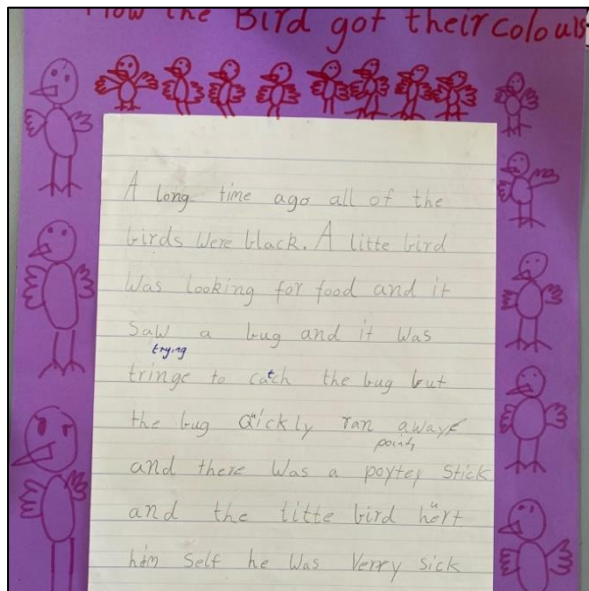 How the Bird got their colours
A long time ago all of the
birds were black. A litte bird
Was looking for food and it
Saw a bug and it was
trying
tringe to catch the bug but
the bug quickly ran away
pointy
and there was a poytey Stick
and the litte bird hurt
him self he was verry sick